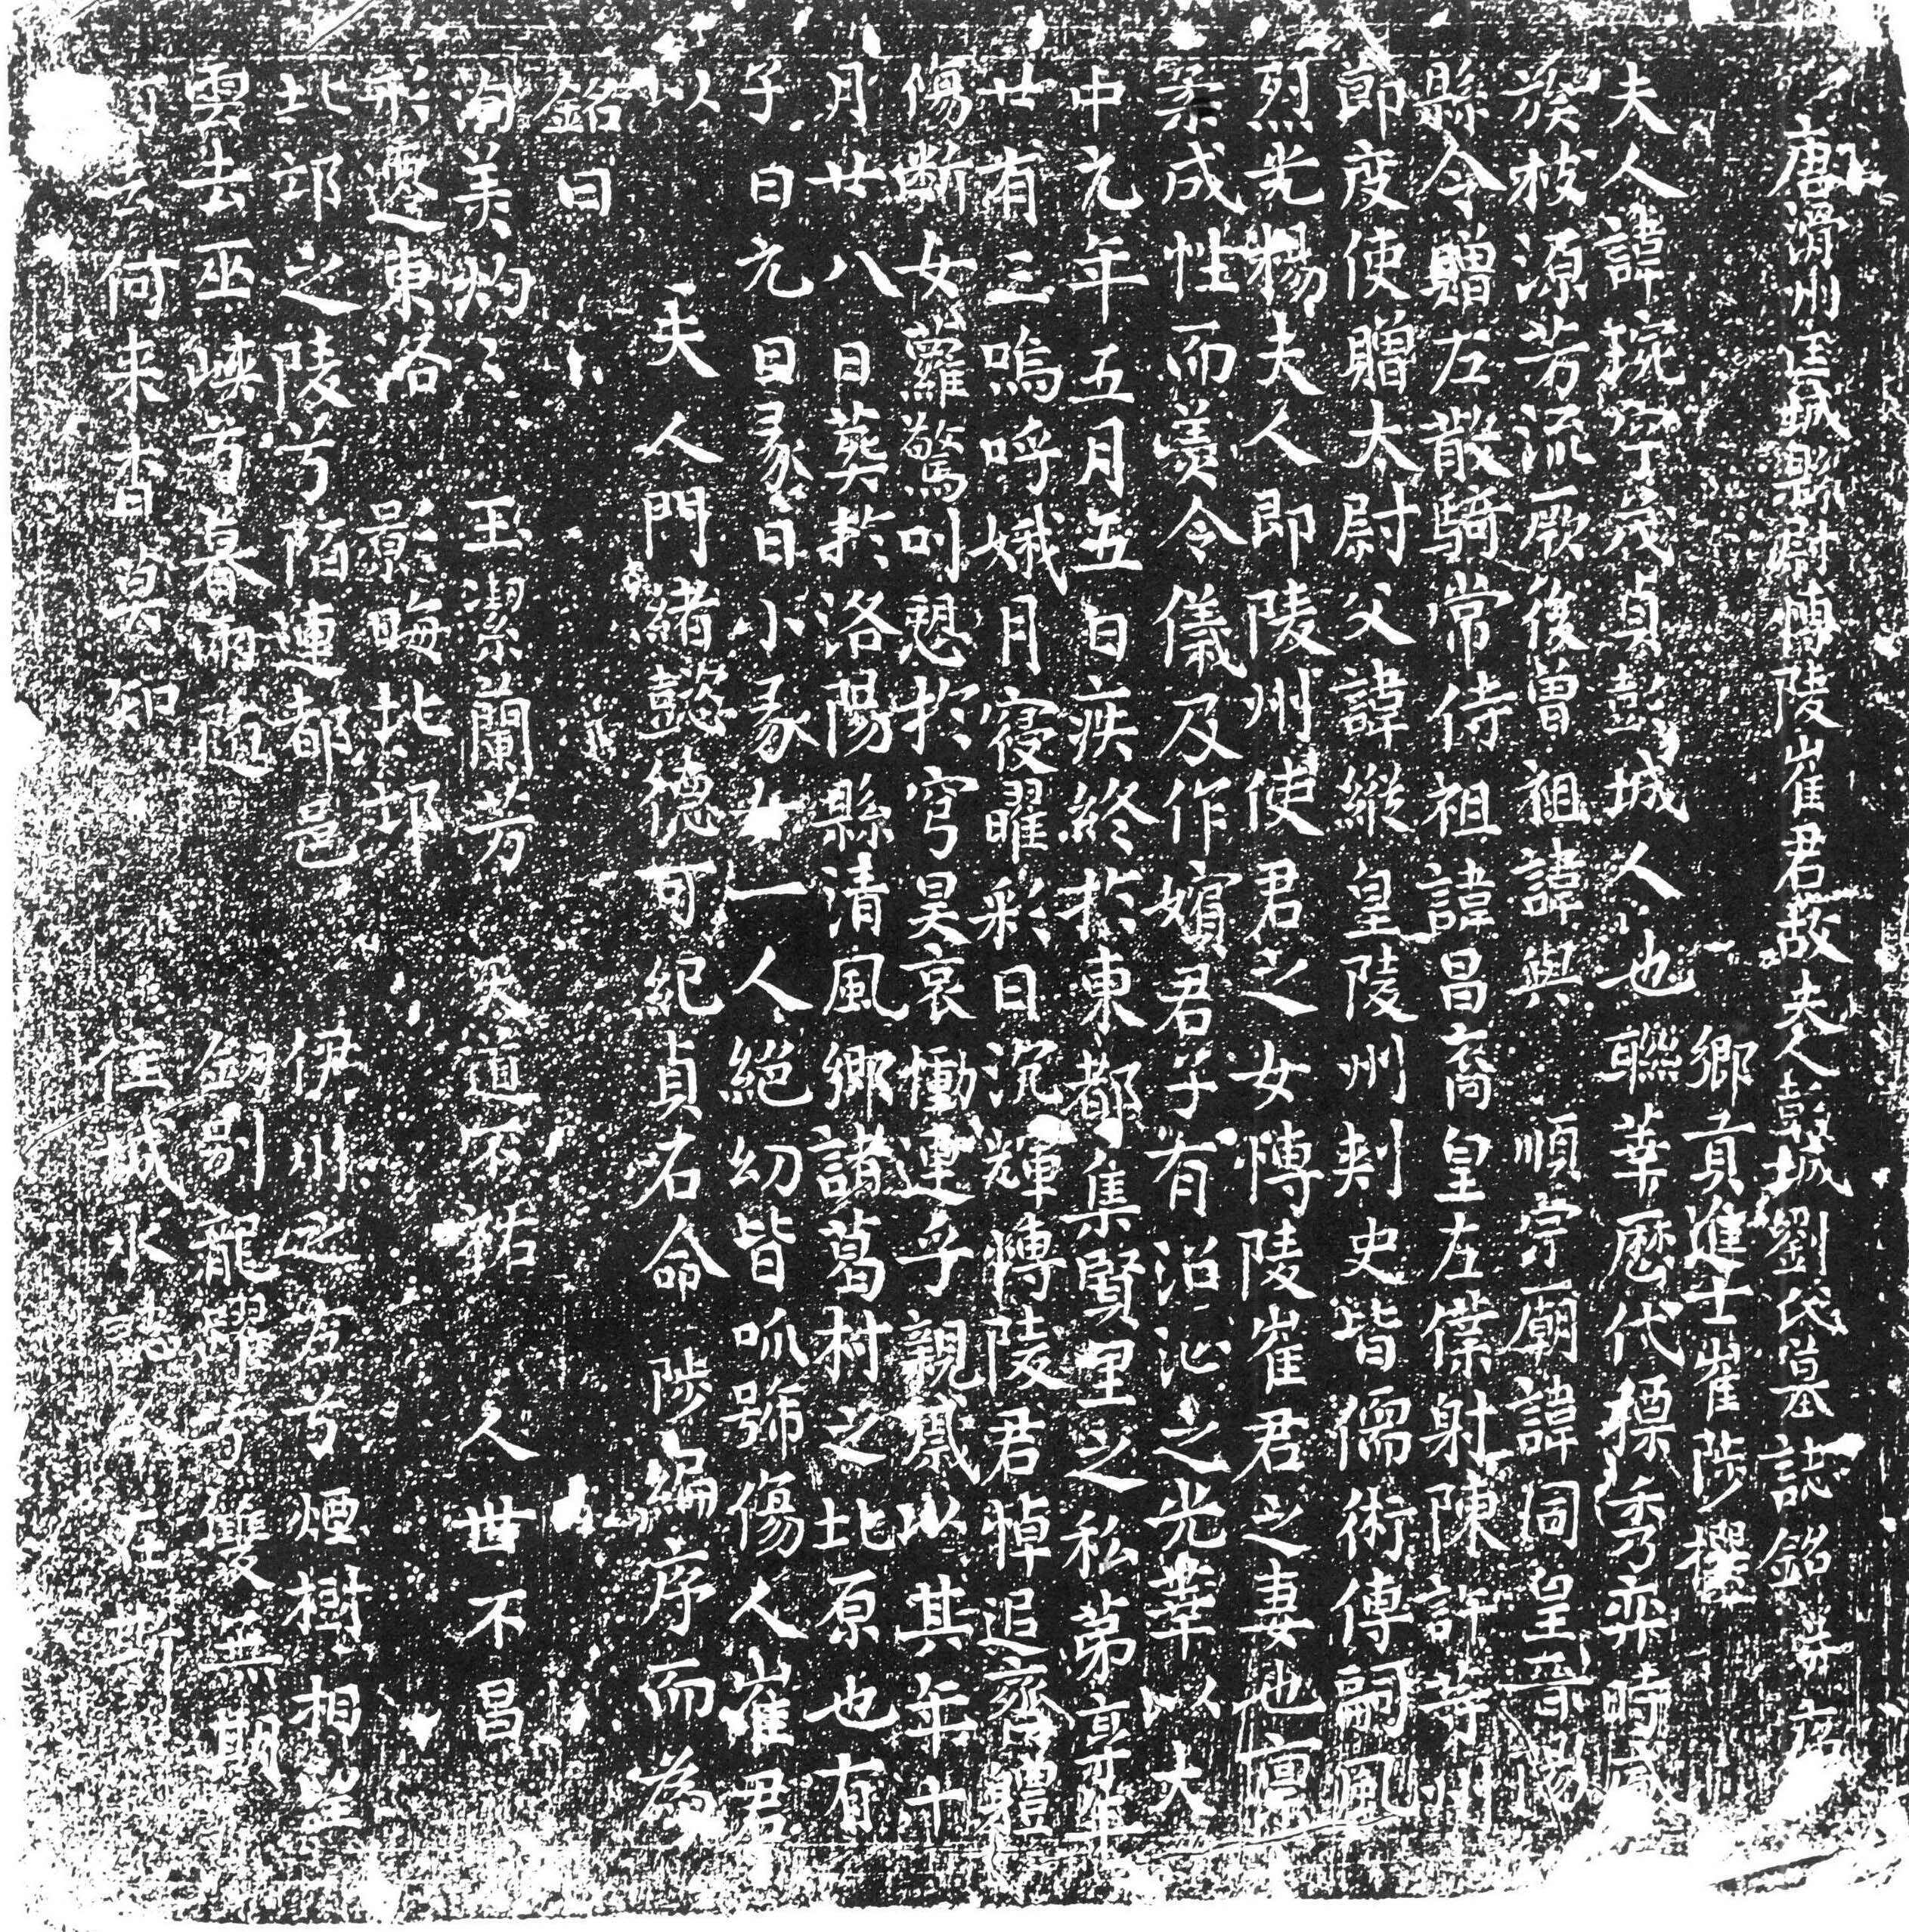 唐滑州匡城縣尉博陵崔君故夫人彭城劉氏墓誌銘并序
鄉貢進士崔陟撰
夫人諱琬字歲貞彭城人也聯華歷代標秀弈時盛
族枝源芳流厥後曾祖諱與順宗廟諱同皇晉陽
縣令贈左散騎常侍祖諱昌裔皇左僕射陳許等州
節度使贈太尉父諱縱皇陵州刾史皆儒術傳嗣風
烈光揚夫人即陵州使君之女博陵崔君之妻也稟
柔成性而羙令儀及作嬪君子有沼沚之光華以大
中元年五月五日疾終於東都集賢里之私第享年
廿有三嗚呼娥月寑曜彩日沉輝博陵君悼追齊體
傷斷女蘿驚叫愬於穹昊哀慟連乎親戚以其年十
月廿八日葬於洛陽縣清風鄉諸葛村之北原也有
子曰元曰彖曰小彖女一人絕幼皆呱號傷人崔君
以夫人門緒懿德可紀貞石命陟編序而為
銘曰
洵美灼〻玉潔蘭芳天道不祐人世不昌
形遷東洛影晦北邙
北邙之陵兮陌連都邑伊川之右兮煙樹相望
雲去巫峽兮暮雨隨劒別龍躍兮雙無期
何去何来杳莫知佳城永誌兮在斯